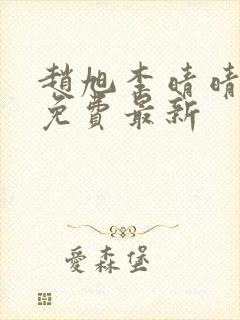 趙旭李晴晴
免費最新
愛森堡